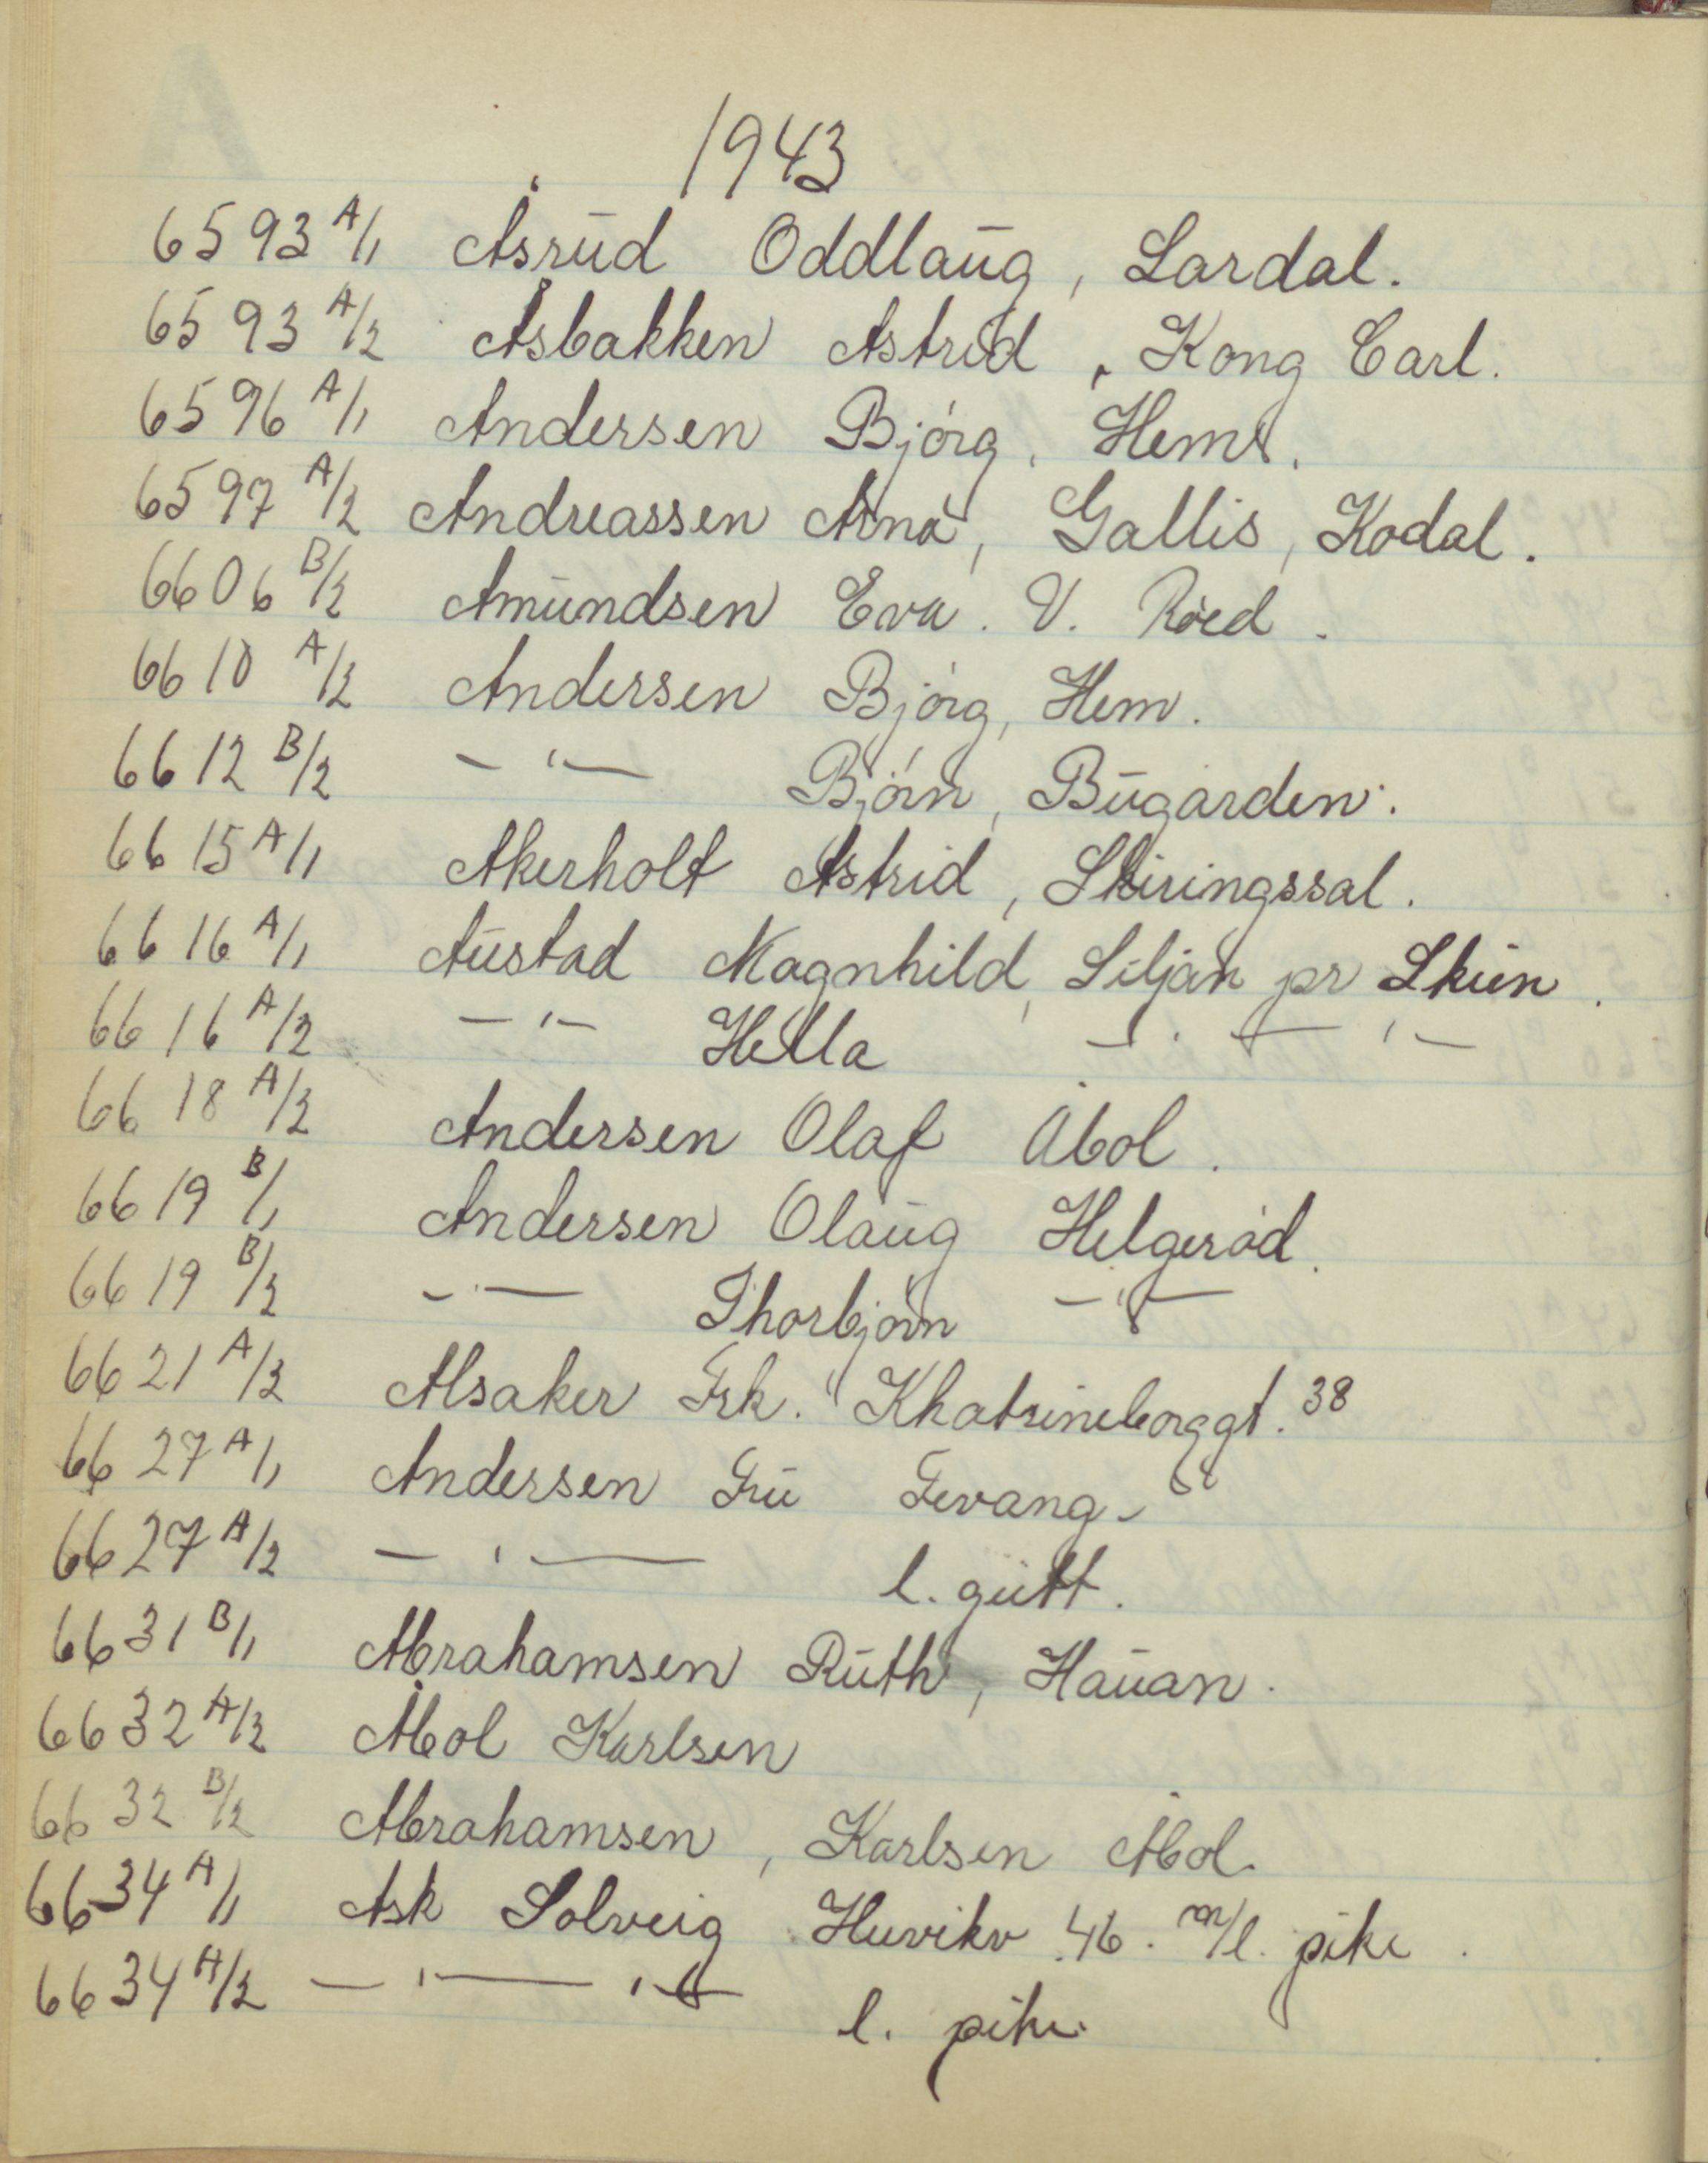 1943
6593 A/1 Åsrud Oddlaug, Lardal.
6593 A/2 Åsbakken Astrid, Kong Carl.
6596 A/1 Andersen Bjórg, Hem.
6597 A/2 Andreassen Arna, Gallis, Kodal.
6606 B/2 Amundsen Eva. V. Róed.
6610 A/2 Andersen Bjórg, Hem.
6612 B/2 — " — Bjórn, Bugården.
6615 A/1 Akerholt Astrid, Skiringssal.
6616 A/1 Austad Magnhild, Siljan pr Skien.
6616 A/2 — " — Hella — " — " —
6618 A/2 Andersen Olaf Åbol.
6619 B/1 Andersen Olaug Helgeród.
6619 B/2 — " — Thorbjórn — " —
6621 A/2 Alsaker Frk. Khatrineborggt. 38
6627 A/1 Andersen Fru Fevang.
6627 A/2 — " — l. gutt.
6631 B/1 Abrahamsen Ruth, Hauan.
6632 A/2 Åbol Karlsen
6632 B/2 Abrahamsen, Karlsen Åbol.
6634 A/1 Ask Solveig Huvikv. 46. m/l. pike.
6634 A/2 — " — " — l. pike.